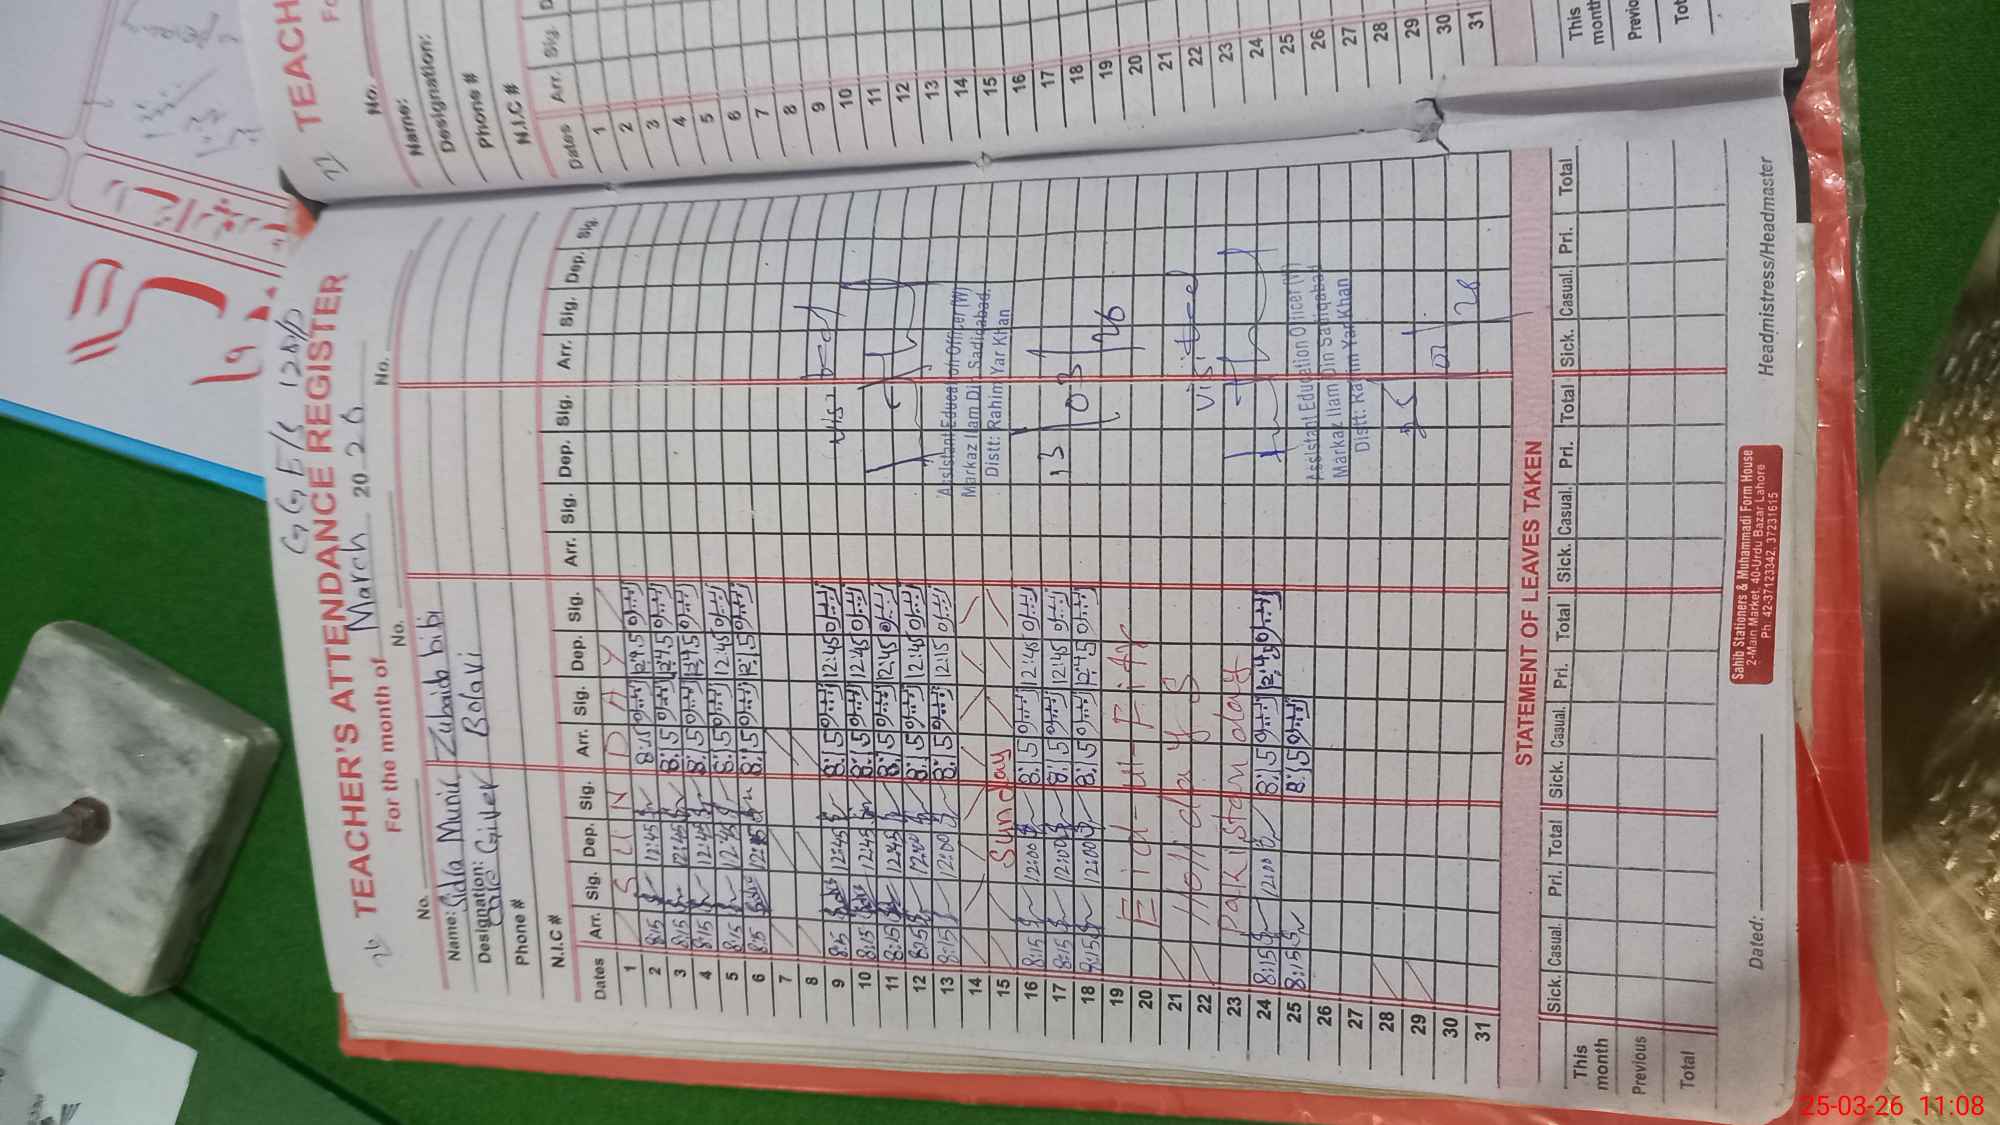 GGE/S 128/P
TEACHER'S ATTENDANCE REGISTER
For the month of March 2026
No. No. No.
Name: Sidra Munir Zubaida bibi
Designation: Care Giver Bolavi
Phone #
N.I.C #
Dates Arr. Sig. Dep. Sig. Arr. Sig. Dep. Sig. Arr. Sig. Dep. Sig. Arr. Sig. Dep. Sig.
1 SUNDAY
2 8:15 12:45 8:15 12:45
3 8:15 12:45 8:15 12:45
4 8:15 12:45 8:15 12:45
5 8:15 12:45 8:15 12:45
6 8:15 12:15 8:15 12:15
7
8
9 8:15 12:45 8:15 12:45
10 8:15 12:45 8:15 12:45
11 8:15 12:45 8:15 12:45
12 8:15 8:15 12:45
13 8:15 12:00 8:15 12:15
14
15 Sunday
16 8:15 12:00 8:15 12:45
17 8:15 12:00 8:15 12:45
18 8:15 12:00 8:15 12:45
19
20 Eid-ul-Fitr
21
22 Holidays
23 Pakistan day
24 8:15 12:00 8:15 12:45
25 8:15 8:15
26
27
28
29
30
31
Assistant Education Officer (W)
Markaz Ilam Din Sadiqabad.
Distt: Rahim Yar Khan
13 03 26
Visited
Assistant Education Officer (W)
Markaz Ilam Din Sadiqabad
Distt: Rahim Yar Khan
STATEMENT OF LEAVES TAKEN
Sick. Casual. Pri. Total Sick. Casual. Pri. Total Sick. Casual. Pri. Total Sick. Casual. Pri. Total
This month
Previous
Total
Dated:
Headmistress/Headmaster
Sahib Stationers & Muhammadi Form House
2-Main Market, 40-Urdu Bazar Lahore
Ph: 42-37123342, 37231615
TEACH
No.
Name:
Designation:
Phone #
N.I.C #
Dates Arr. Sig.
1
2
3
4
5
6
7
8
9
10
11
12
13
14
15
16
17
18
19
20
21
22
23
24
25
26
27
28
29
30
31
This month
25-03-26 11:08